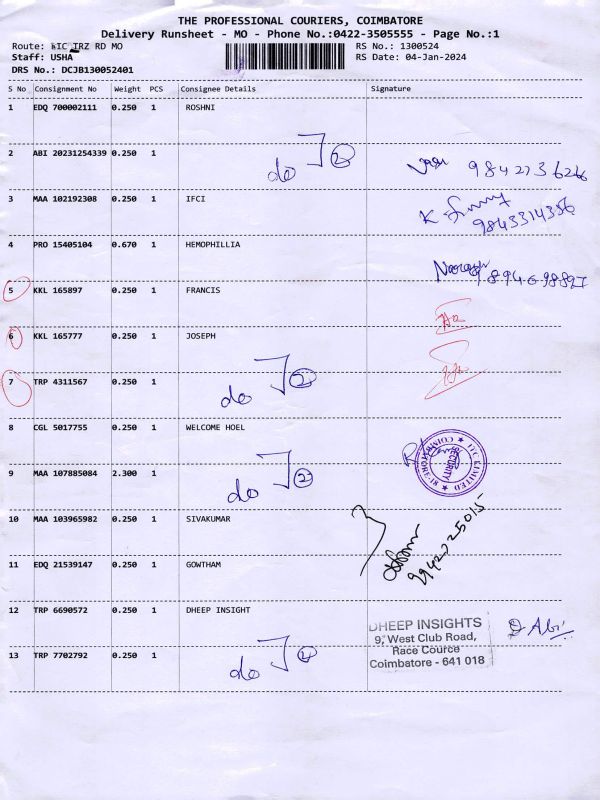 THE PROFESSIONAL COURIERS, COIMBATORE
Delivery Runsheet - MO - Phone No.:0422-3505555 - Page No.:1
Route: IRZ RD MO RS No.: 1300524
Staff: USHA RS Date: 04-Jan-2024
DRS No.: DCJB130052401
S No Consignment No Weight PCS Consignee Details Signature
1 EDQ 700002111 0.250 1 ROSHNI
do 2
2 ABI 20231254339 0.250 1
3 MAA 102192308 0.250 1 IFCI
9843314356
4 PRO 15405104 0.670 1 HEMOPHILLIA
5 KKL 165897 0.250 1 FRANCIS
6 KKL 165777 0.250 1 JOSEPH
7 TRP 4311567 0.250 1
do 2
8 CGL 5017755 0.250 1 WELCOME HOEL
ITC LIMITED
SECURITY
9 MAA 107885084 2.300 1
do 2
10 MAA 103965982 0.250 1 SIVAKUMAR
9942025015
11 EDQ 21539147 0.250 1 GOWTHAM
12 TRP 6690572 0.250 1 DHEEP INSIGHT
DHEEP INSIGHTS
9, West Club Road,
Race Cource
Coimbatore - 641 018
D Abi
13 TRP 7702792 0.250 1
do